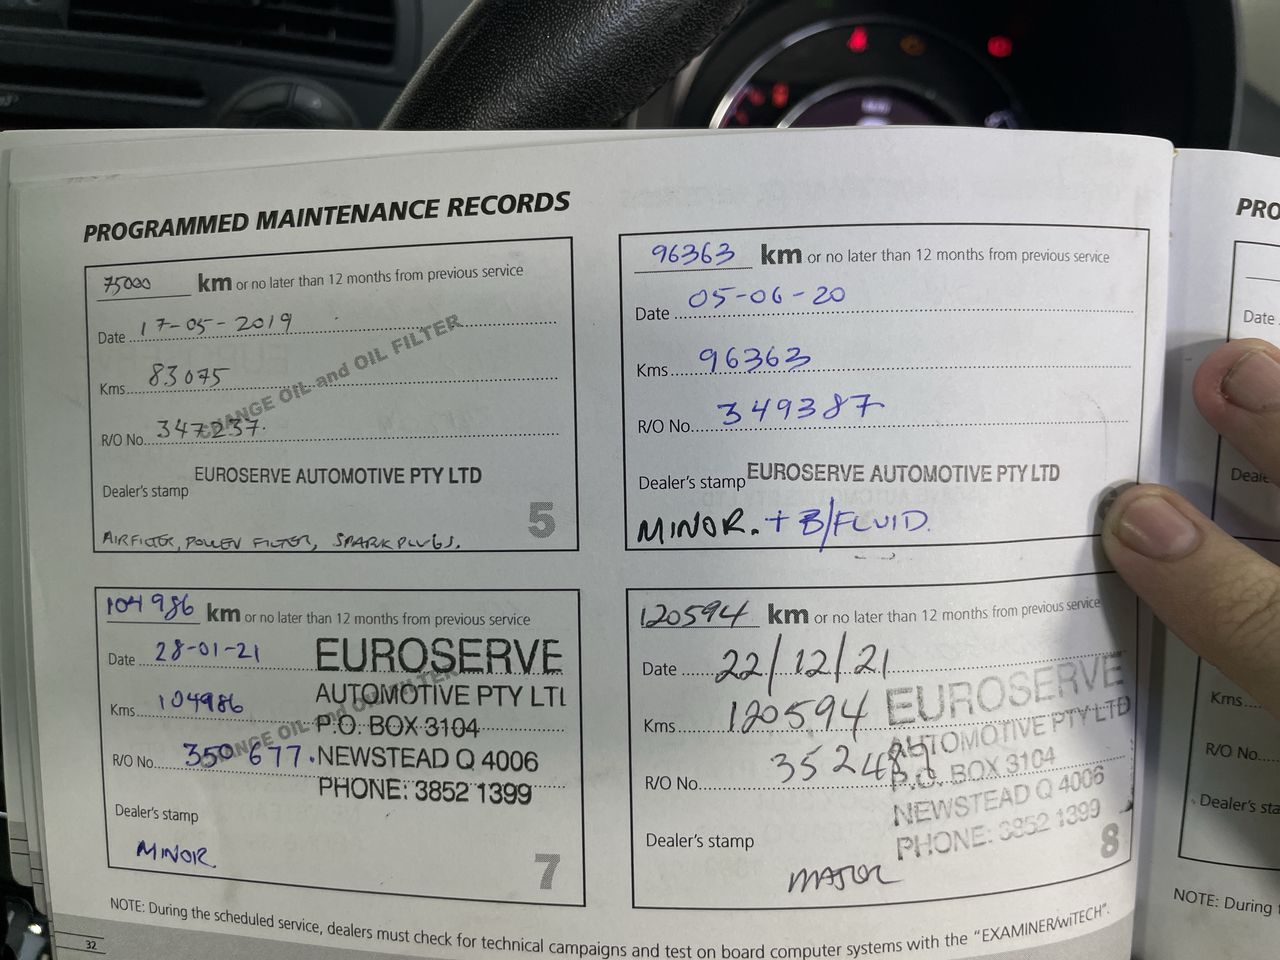 PROGRAMMED MAINTENANCE RECORDS
75000 km or no later than 12 months from previous service
Date 17-05-2019
CHANGE OIL and OIL FILTER
Kms 83075
R/O No. 347237.
EUROSERVE AUTOMOTIVE PTY LTD
Dealer's stamp
5
AIRFILTER, POLLEN FILTER, SPARKPLUGS.
96363 km or no later than 12 months from previous service
Date 05-06-20
Kms 96363
R/O No. 349387
Dealer's stamp EUROSERVE AUTOMOTIVE PTY LTD
MINOR. + B/FLUID.
104986 km or no later than 12 months from previous service
Date 28-01-21
EUROSERVE
Kms 104986
AUTOMOTIVE PTY LT
CHANGE OIL and OIL FILTER
P.O. BOX 3104
R/O No. 350677.
NEWSTEAD Q 4006
PHONE: 3852 1399
Dealer's stamp
MINOR
7
120594 km or no later than 12 months from previous service
Date 22/12/21
Kms 120594
EUROSERVE
AUTOMOTIVE PTY LTD
R/O No.
P.O. BOX 3104
NEWSTEAD Q 4006
Dealer's stamp
PHONE: 3852 1399
8
MAJOR
NOTE: During the scheduled service, dealers must check for technical campaigns and test on board computer systems with the "EXAMINER/wiTECH".
32
PRO
Date
Kms
R/O No.
Dealer's sta
NOTE: During